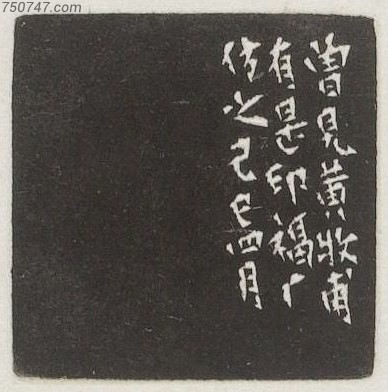 750747.com
曾見黃牧甫
有是印福厂
仿之己巳四月